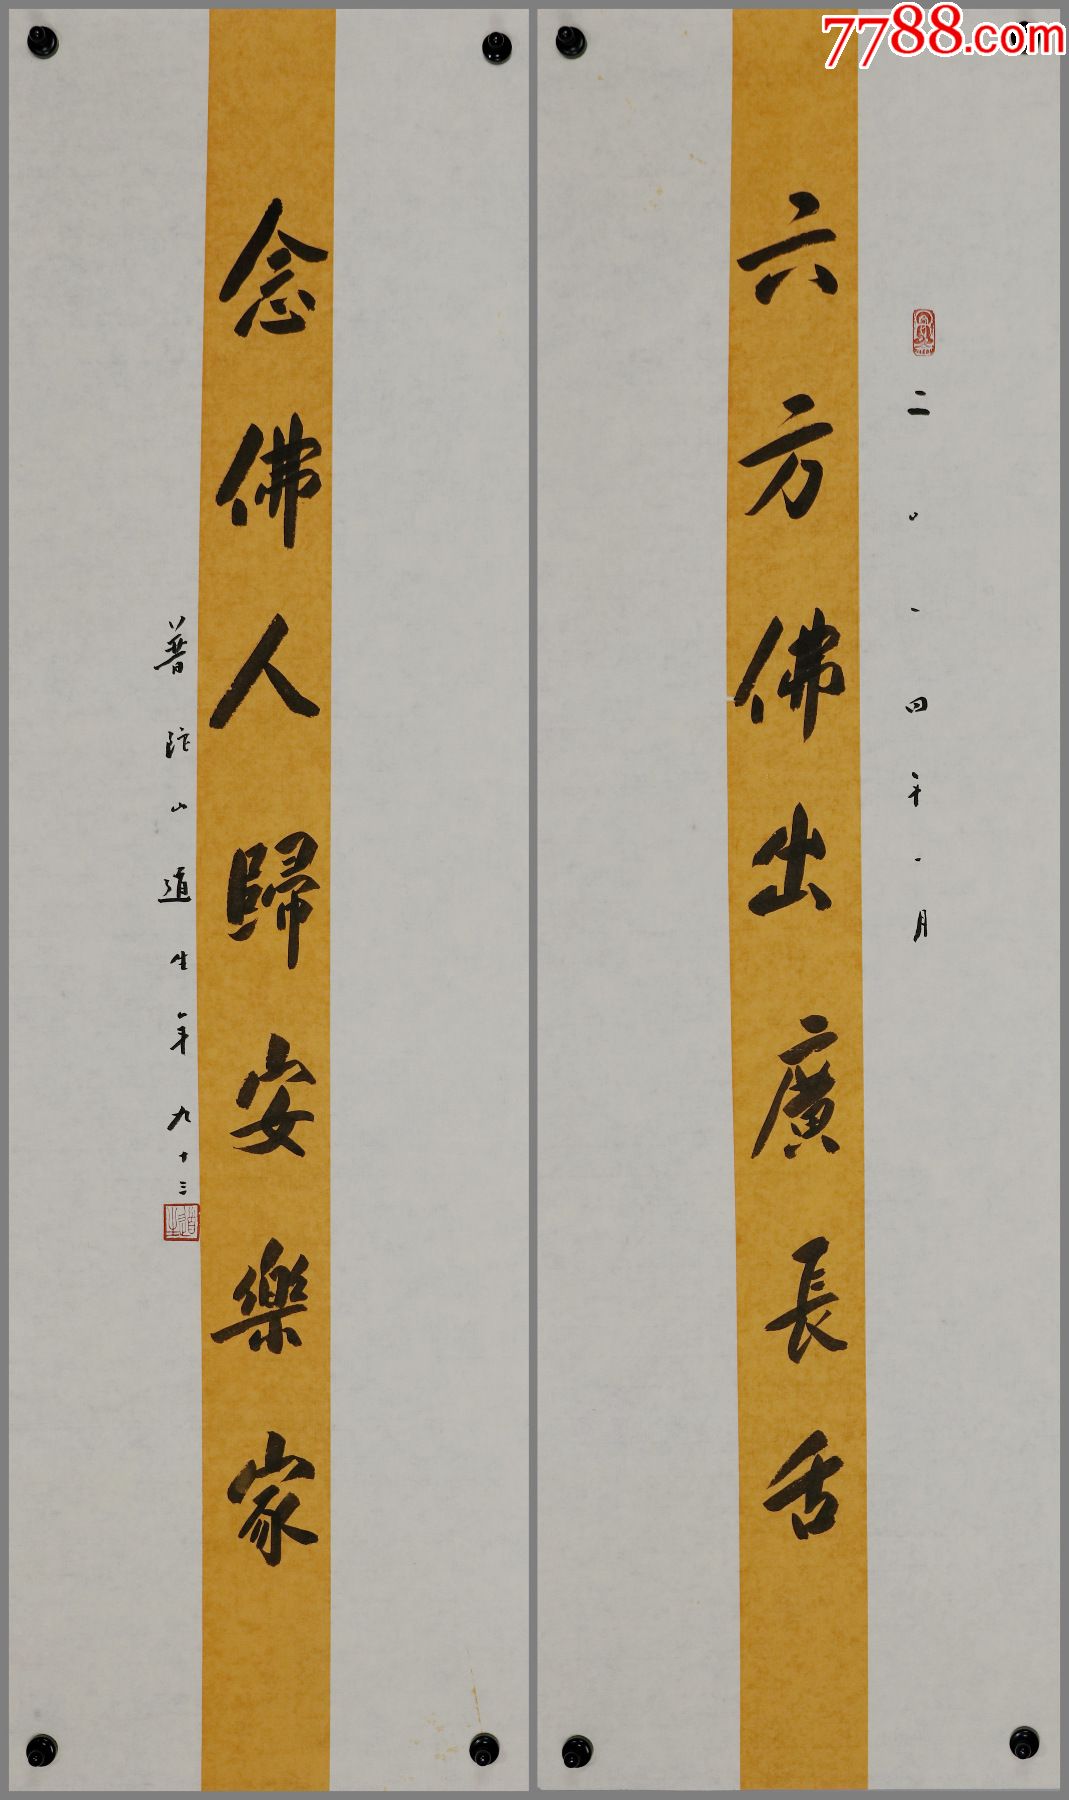 7788.com
六方佛出廣長舌
二〇一四年一月
念佛人歸安樂家
普陀山道生年九十三
道生